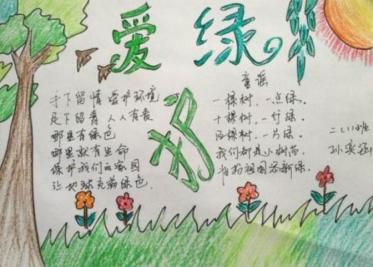 爱绿护
手下留情 爱护环境
足下留青 人人有责
哪里有绿色
哪里就有生命
保护我们的家园
让地球充满绿色
童谣
一棵树,一点绿,
十棵树,一行绿,
百棵树,一片绿,
我们都是小树苗,
祖国添新绿。
二(1)班
孙